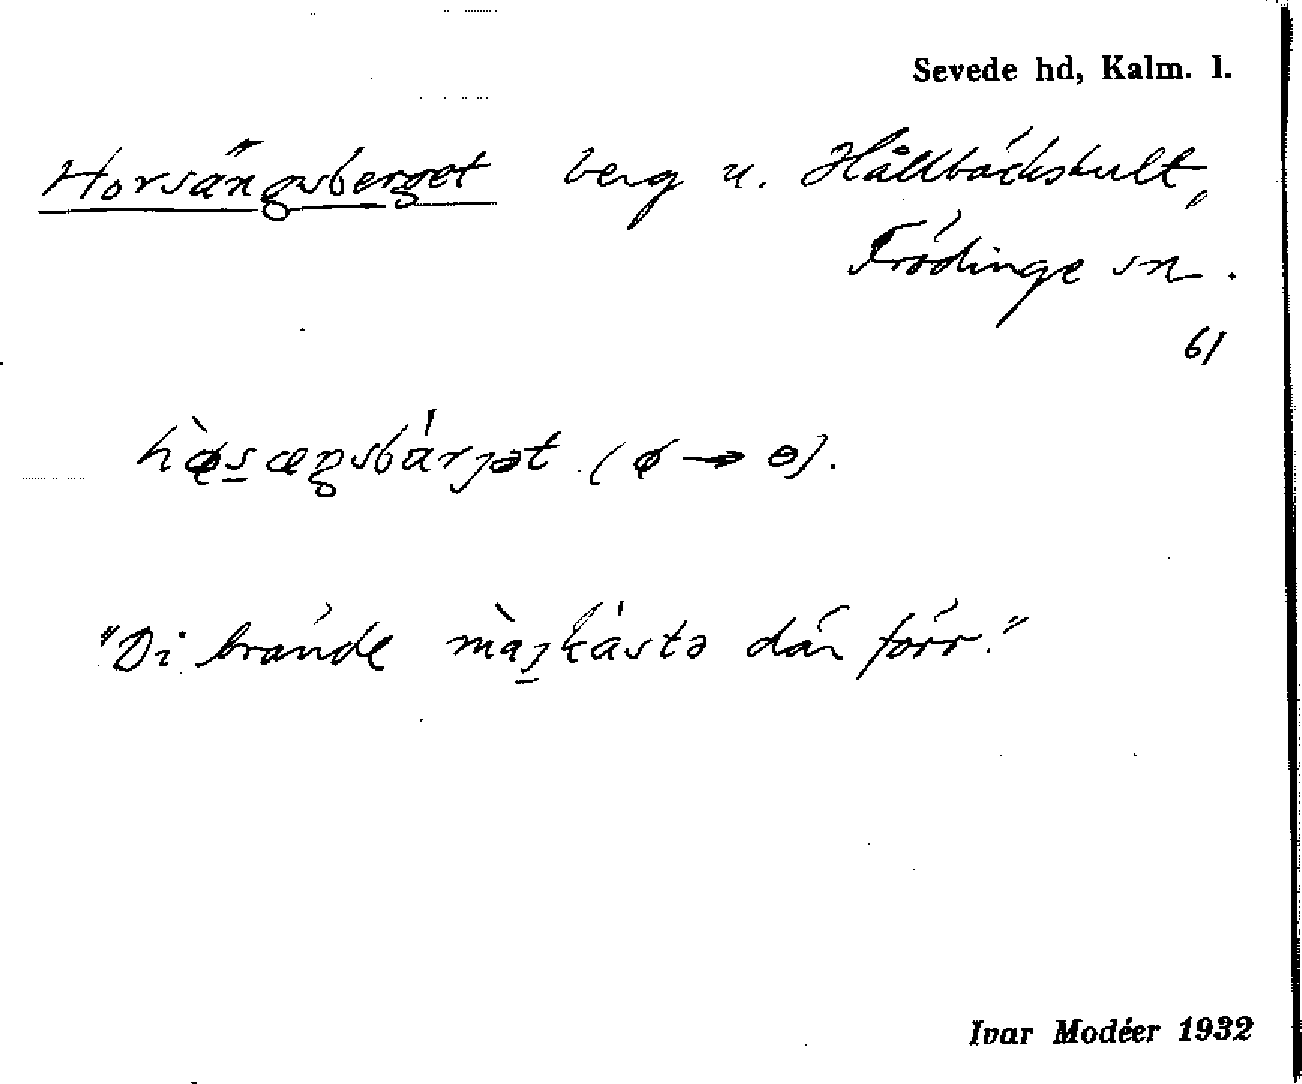 Sevede hd, Kalm. l.
Horsängsberget berg u. Hållbäckshult,
Frödinge sn.
61
hø̀s̲æŋsbárjət (ø → ɵ).
"Di brände màj̲kástə där förr."
Ivar Modéer 1932